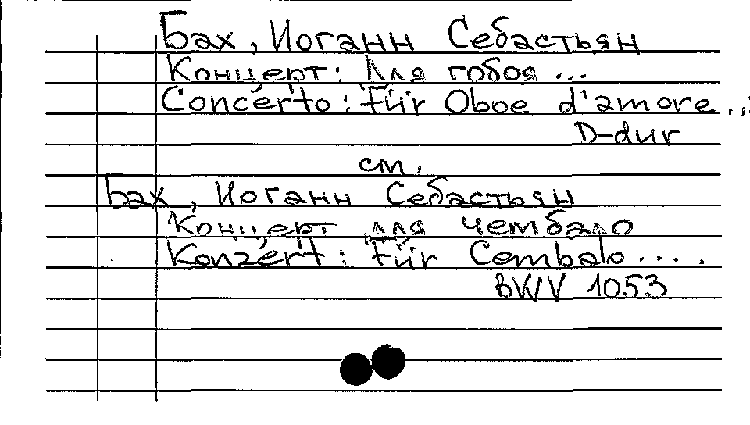 Бах, Иоганн Себастьян
Концерт: Для гобоя ...
Concerto: Für Oboe d'amore ...
D-dur
см.
Бах, Иоганн Себастьян
Концерт для чембало
Konzert: Für Cembalo ....
BWV 1053